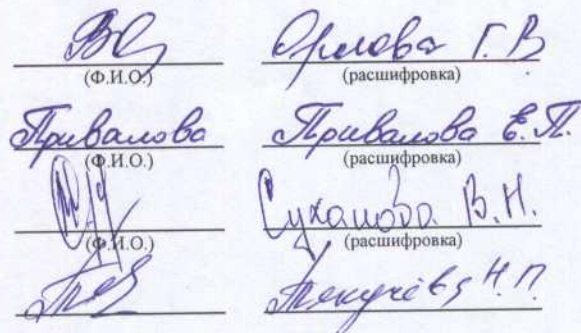 Орлова Г. В
(Ф.И.О.) (расшифровка)
Привалова Привалова Е.П.
(Ф.И.О.) (расшифровка)
Суханова В.Н.
(Ф.И.О.) (расшифровка)
Текучёва Н.П